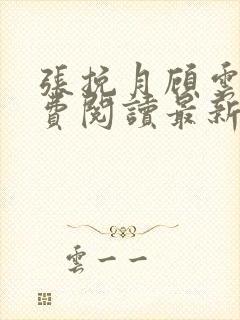 張挽月顧雲
費閱讀最新
雲一一